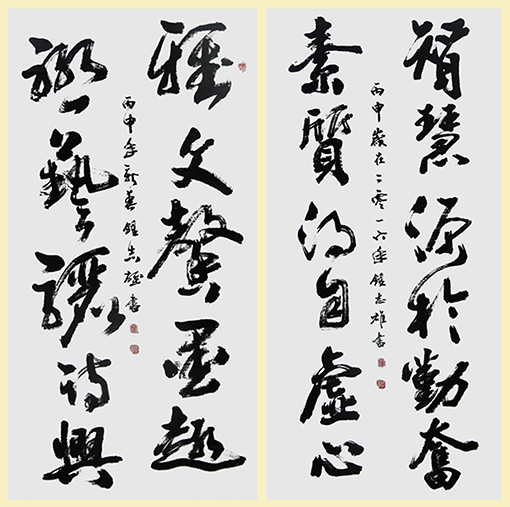 智慧源於勤奮
素質得自虛心
丙申歲在二零一六年鍾志雄書
雅文馨墨趣
藝詩興
丙申年新春鍾志雄書